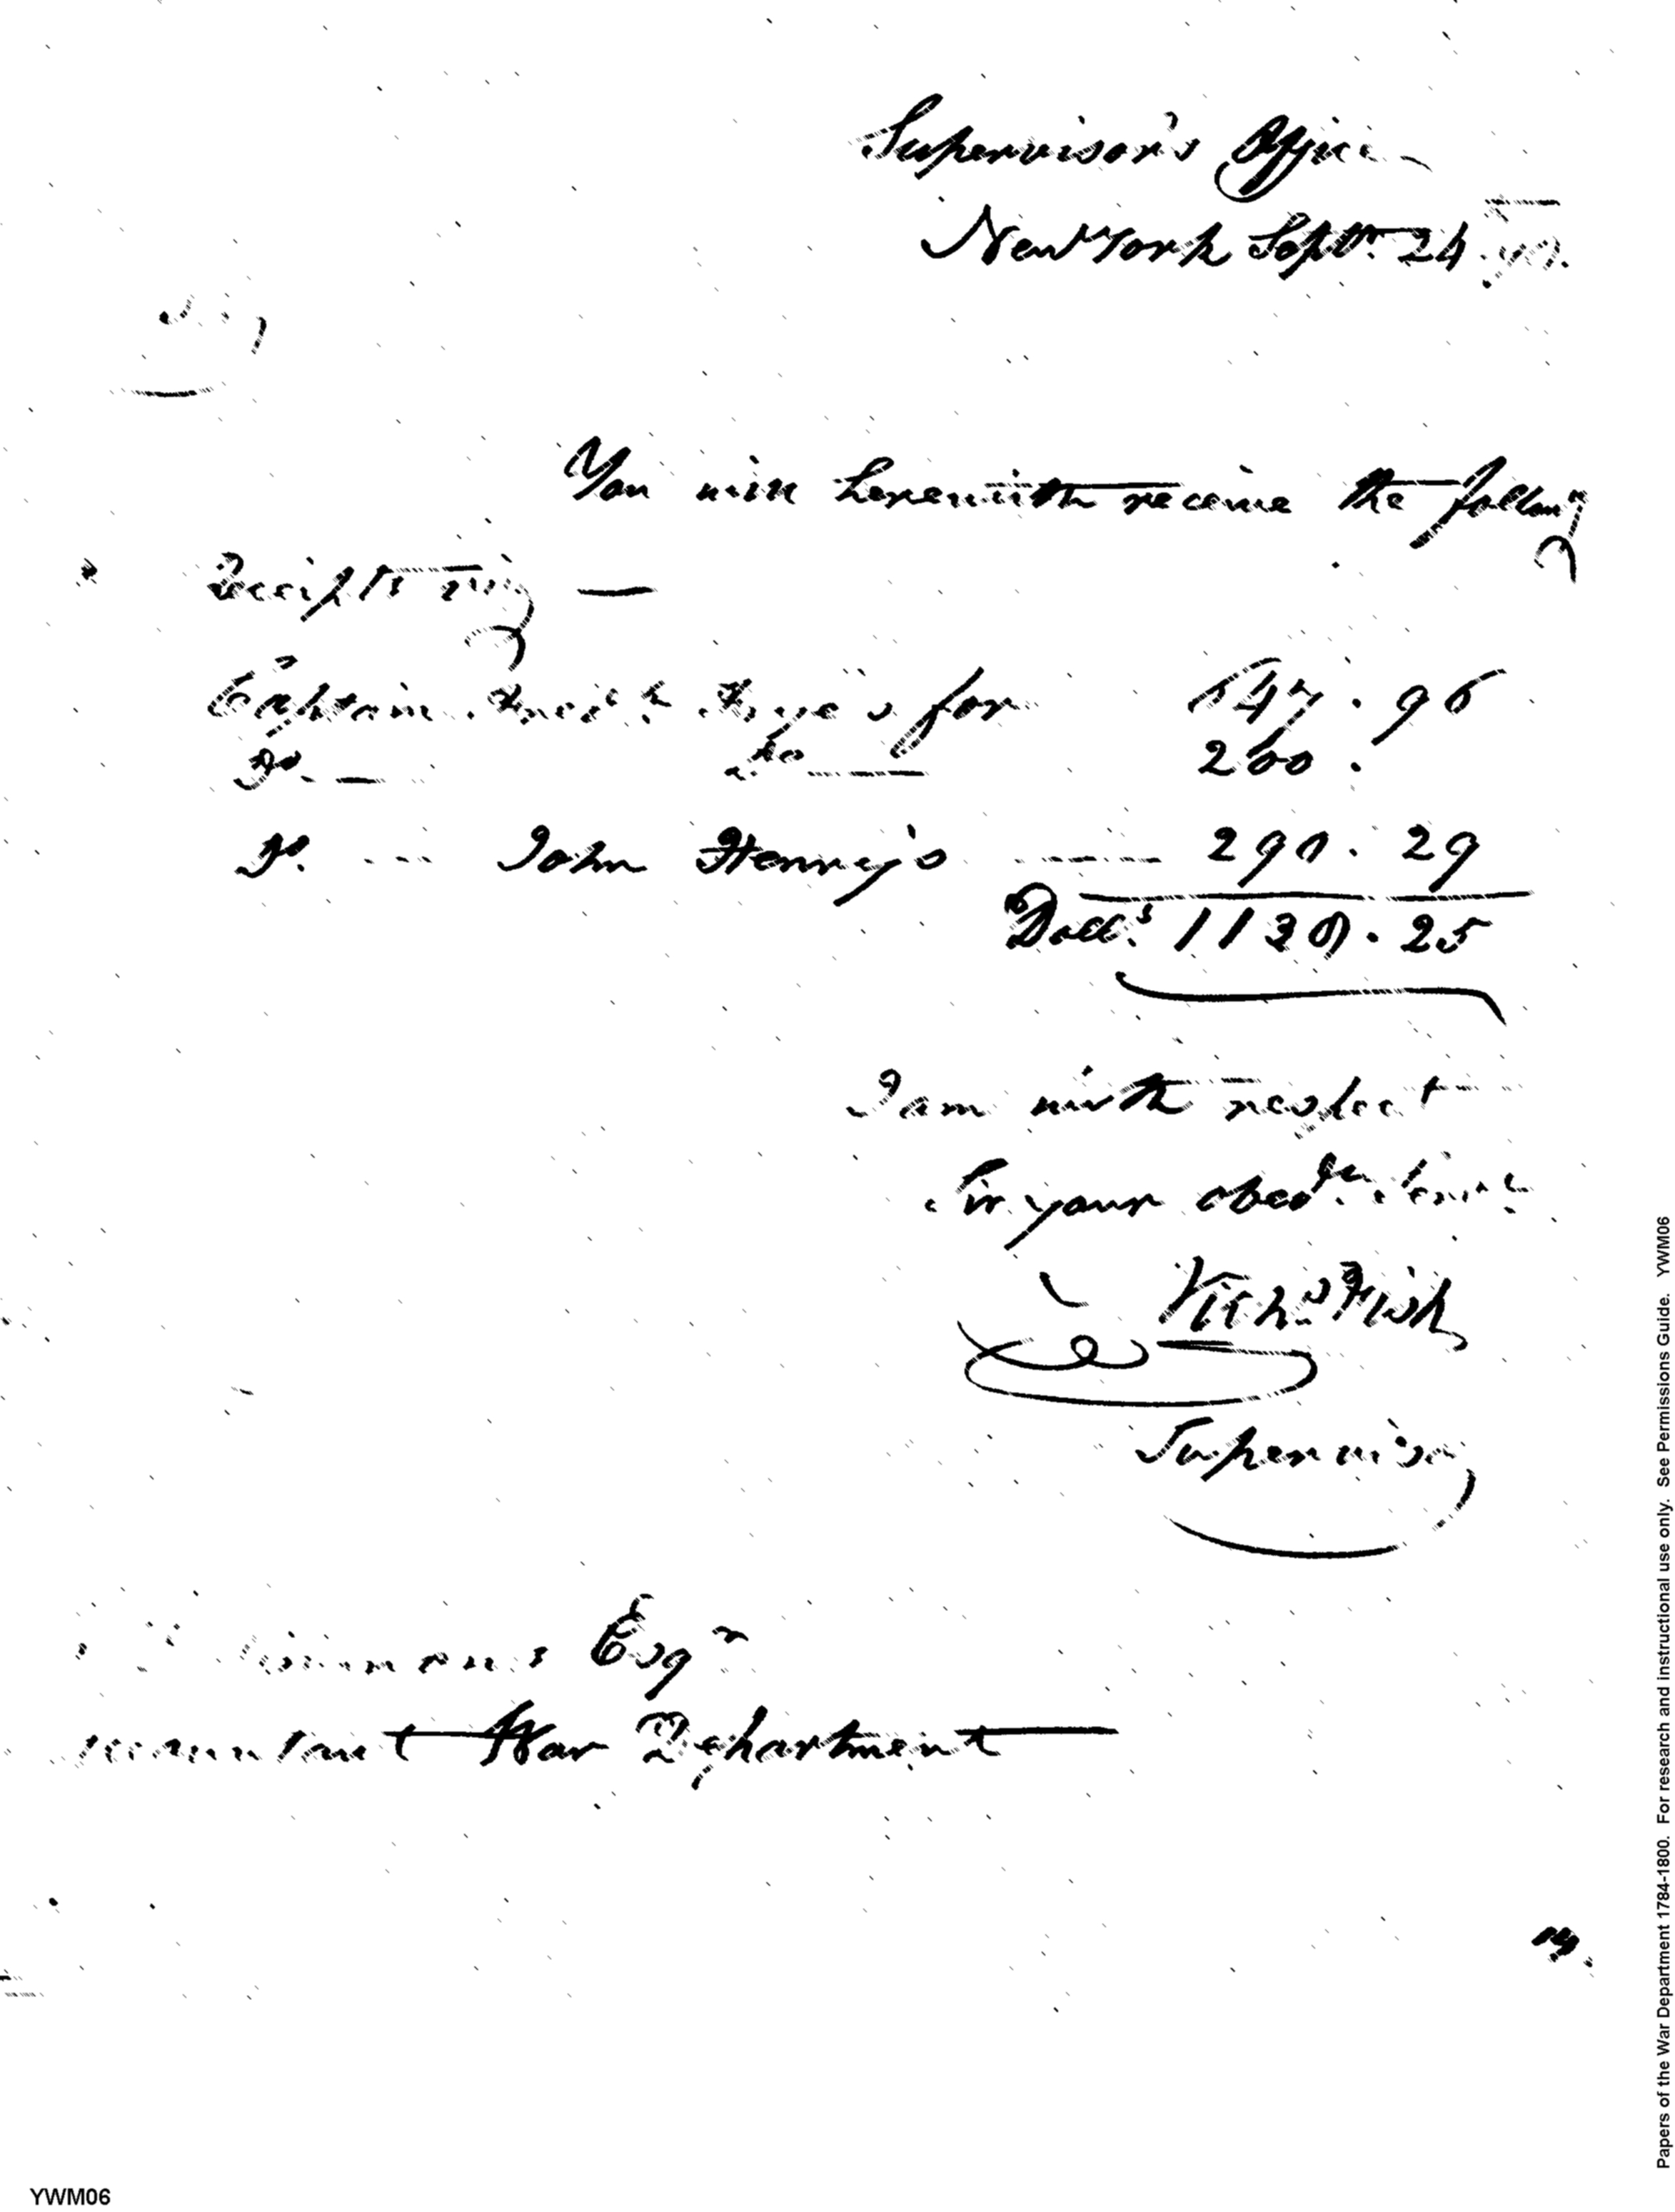 Supervisor's Office
New York Septr. 24. 97.
Sir,
You will herewith receive the follow.g
Receipts viz —
Captain Fred.k Frye's for 647.96
Do. — do 200.
Do. --- John Henry's 290.29
Dolls. 1138.25
I am with respect
Sir your obed.t Serv.t
Nich.s Fish
Supervisor
Simmons Esqr
Accountant War Department
Papers of the War Department 1784-1800. For research and instructional use only. See Permissions Guide. YWM06
YWM06